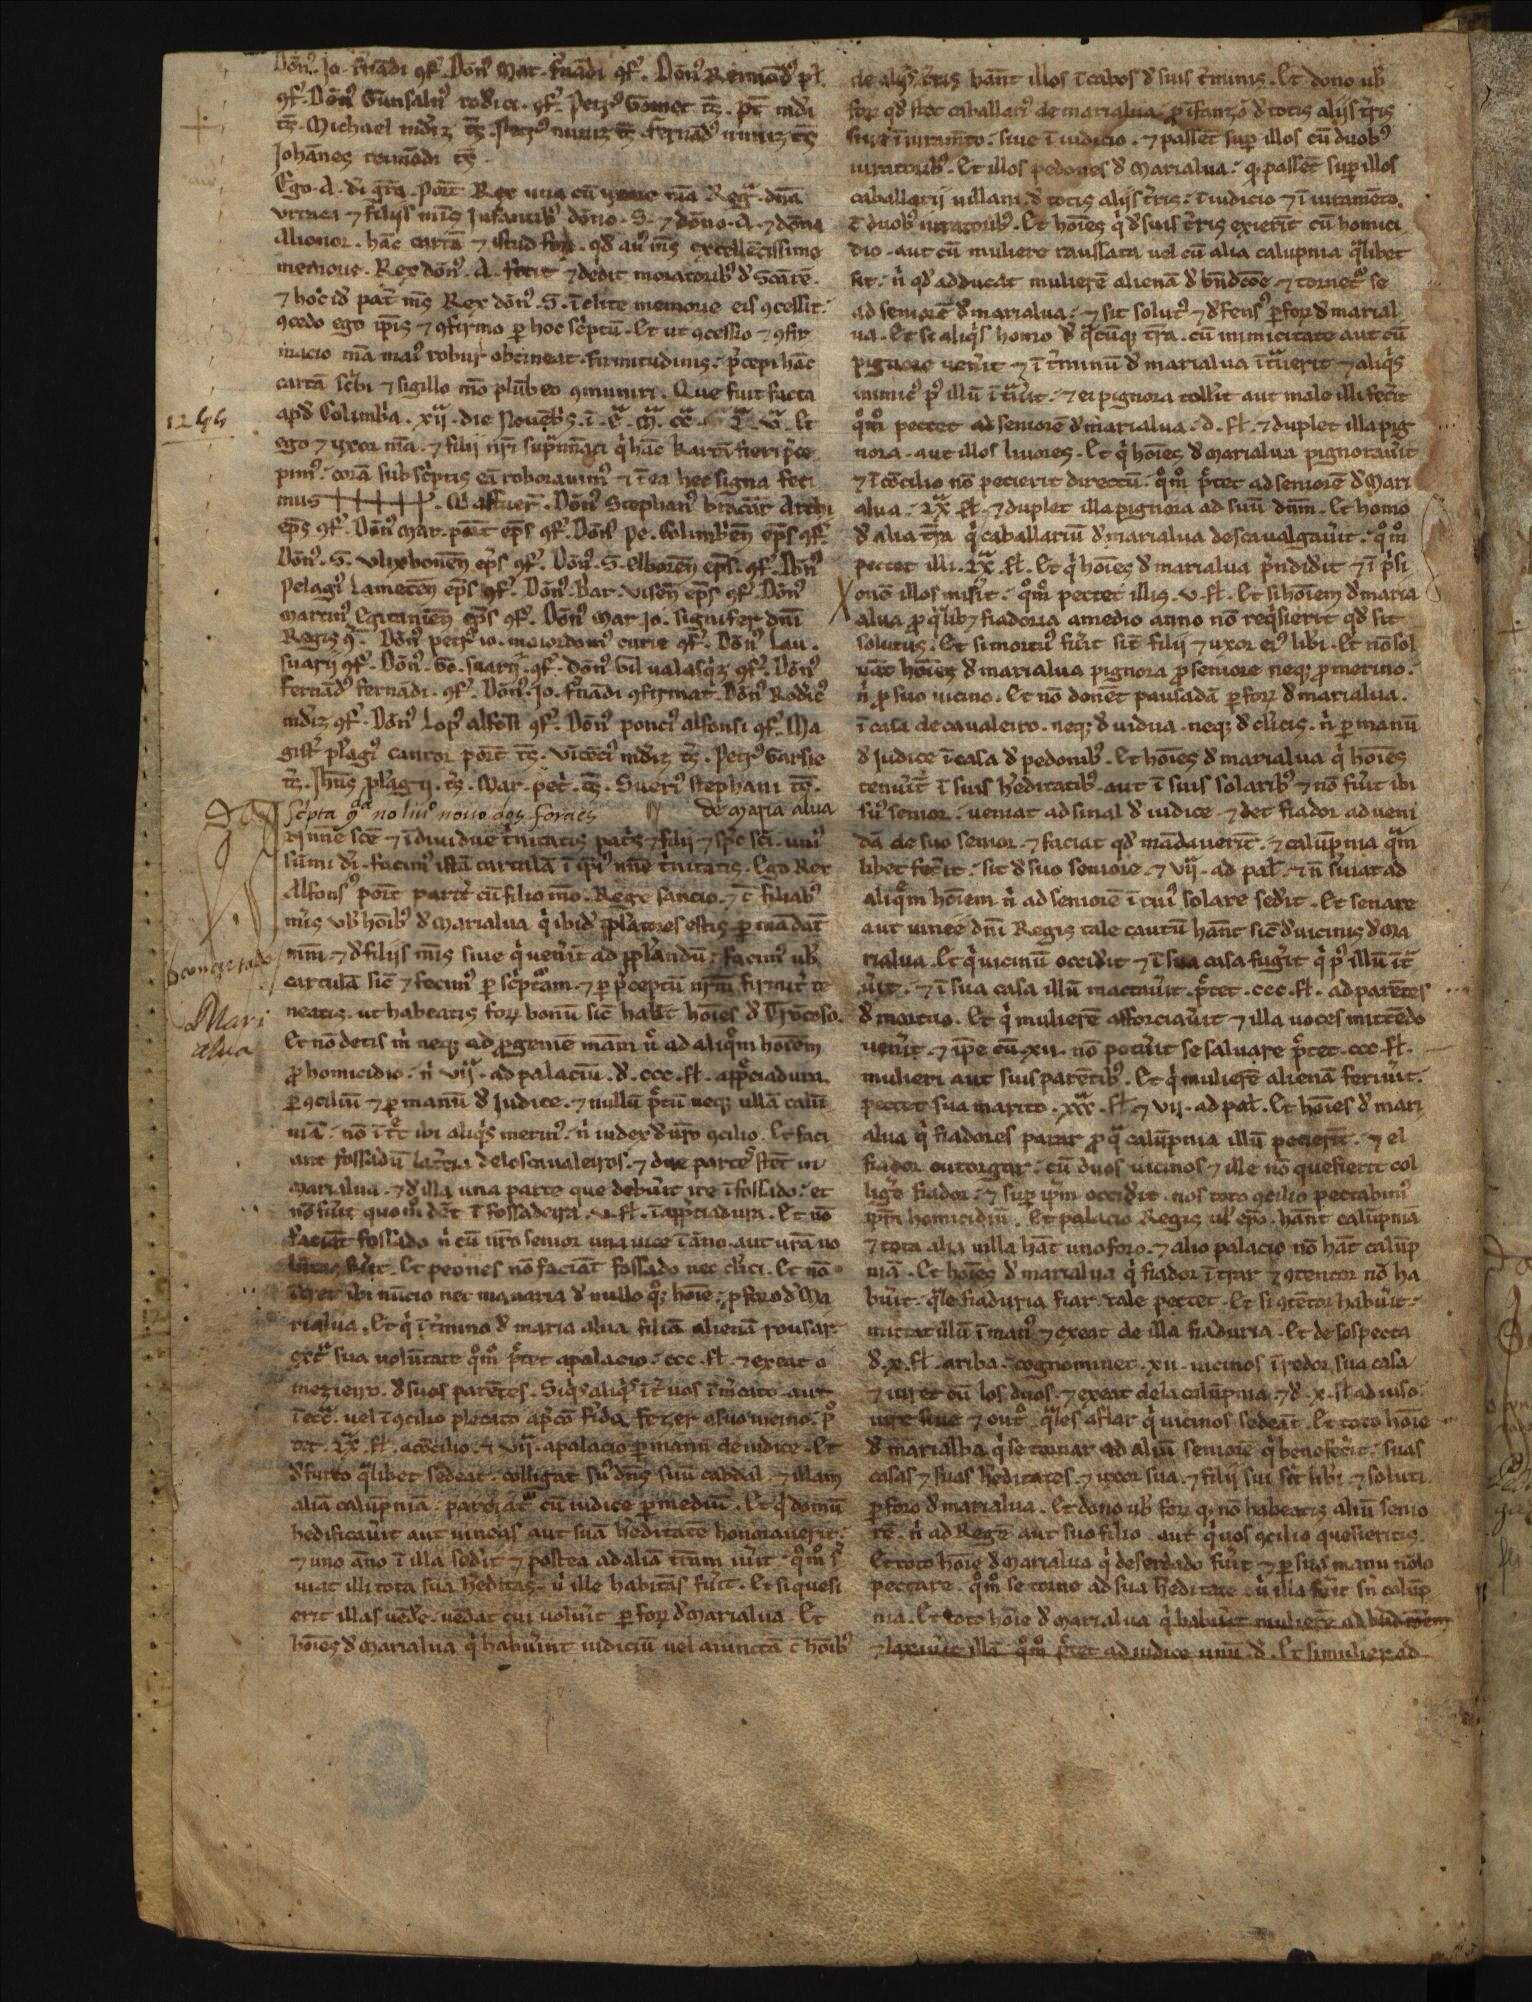 Dōn⁹. Jo. fnādi ꝯf. Dōn⁹ Mar. fnādi ꝯf. Dōn⁹ Remōd⁹ pl.
ꝯf. Dōn⁹ Gunsalu⁹ roderici. ꝯf. Petr⁹ Gomet t̄s. pet mdi
t̄s. Michael t̄s. petr⁹ nuniz t̄s. Fernād⁹ nuniz t̄s
Johānes remōdi t̄s.
Ego. A. di grā. Port̄. Rex una cū uxore mā Reḡ. dnā
Urraca ⁊ filijs mīs Infantib⁹ dōno. S. ⁊ dōno. A. ⁊ dōna
Alionor. hāc cartā ⁊ istud forū. qd au⁹ m̄s excellētissime
memorie. Rex dōn⁹. A. fecit ⁊ dedit moratorib⁹ d' Scārē.
⁊ hoc id pat̄ m̄s Rex dōn⁹. S. īclite memorie eis ꝯcessit.
ꝯcedo ego ip̄is ⁊ ꝯfirmo p hoc sc̄ptū. Et ut ꝯcessio ⁊ ꝯfir
macio mā mai⁹ robur obtineat firmitudinis. p̄cepi hāc
cartā sc̄bi ⁊ sigillo mō plūbeo ꝯmuniri. Que fuit facta
apd Colimbria. xij. die Nouēbris. ī. Eª. Mª. ccª. Lª. vª. Et
ego ⁊ uxor mā. ⁊ filij nr̄i sup̄nn̄ati q̄ hāc kartā fieri p̄ce
pim⁹. corā sub sc̄ptis eā roborauim⁹ ⁊ ī ea hec signa feci
mus ++++++. Q̄ affuer̄. Dōn⁹ Stephan⁹ bracar̄ Archi
ep̄s ꝯf. Dōn⁹ Mar. port̄ ep̄s ꝯf. Dōn⁹ Pe. Colimbrien̄ ep̄s ꝯf.
Dōn⁹. S. Ulixbonen̄ ep̄s ꝯf. Dōn⁹. S. Elboren̄ ep̄s. ꝯf. Dōn⁹
Pelagi⁹ Lamecen̄ ep̄s ꝯf. Dōn⁹. Bar. Visen̄ ep̄s ꝯf. Dōn⁹
Martin⁹ Egitanien̄ ep̄s ꝯf. Dōn⁹ Mar. Jo. signifer dn̄i
Regis ꝯf. Dōn⁹ petr⁹ io. maiordom⁹ curie ꝯf. Dōn⁹ Lau.
suarij ꝯf. Dōn⁹. Gō. suarij. ꝯf. dōn⁹ Gil ualasq̄z ꝯf. Dōn⁹
Fernād⁹ fernādi. ꝯf. Dōn⁹. Jo. fnādi ꝯfirmat. Dōn⁹ Rodic⁹
ꝯf. Dōn⁹ Lop⁹ alfon̄ ꝯf. Dōn⁹ ponci⁹ alfonsi ꝯf. Ma
gist̄ pelagi⁹ cantor port̄ t̄s. Vicēci⁹ t̄s. Petr⁹ Garsie
t̄s. Jhn̄s pelagij. t̄s. Mar. pet̄. t̄s. Sueri⁹ stephani t̄s.
de Maria alua
scpta no liuº nouo dos foraes
I nn̄e scē ⁊ īdiuidue t̄nitatis pat̄s ⁊ filij ⁊ sp̄c sci. uni⁹
sūmi di. facim⁹ istā cartulā ī ip̄i⁹ nn̄e t̄nitatis. Ego Rex
Alfons⁹ port̄ parit̄ cū filio mō. Rege sancio. ⁊ c̄ filiab⁹
m̄is ub hoīb⁹ d' Marialua q̄ ibid' pp̄latores estis. p mādat̄
nm̄. ⁊ d' filijs m̄is siue q̄ ueṅit ad pp̄landū. facim⁹ ub
cartulā sic̄ ⁊ fecim⁹ p sc̄ptām. ⁊ p p̄ceptū nr̄m firmit̄ te
neatis. ut habeatis forū bonū sic̄ habēt hoīes d' Trōcoso.
Et nō detis m̄ neq; ad ꝓgeniē mām n̄ ad aliq̄m hoīem
ꝓ homicidio. n̄ vijª. ad palaciū. d'. ccc. sl̄. app̄ciadura.
p ꝯciliū ⁊ p manū d' Judice. ⁊ nullū p̄tū neq; ullā calū
niā. nō īt̄t ibi aliq̄s merin⁹. n̄ iudex d' ur̄o ꝯcilio. Et faci
ant fossadū la t̄cia de los caualeiros. ⁊ due partes stēt in
Marialua. ⁊ d' illa una parte que debūit ire ī fossado. et
nō fūit quom̊ det ī fossadeira. v. sl̄. ī app̄ciadura. Et nō
faciāt fossado n̄ cū ur̄o senior una uice ī āno. aut urā uo
lūtas fūit. Et peones nō faciāt fossado nec cl̄ici. Et nō
ītret ibi nūcio nec manaria d' nullo q̊; hoīe. ꝑ foro d' Ma
rialua. Et q̄ ī t̄mino d' maria alua filiā alienā rousar
ext̄ sua uolūtate q̊m̊ p̄tet apalacio. ccc. sl̄. ⁊ exeat o
mezieiro. d' suos parētes. Siq̄s aliq̄s īt̄ uos ī m̄cato aut
ī ecc̄ª. uel ī ꝯcilio plecato
Lxª. sl̄. a cōcilio. ⁊ vijª. apalacio p manū de iudice. Et
d' furto q̄libet sedeat. colligat su⁹ dn̄s suū cabdal. ⁊ illam
aliā calupniā. parciat̄ cū iudice p mediū. Et q̄ domū
hedificaūit aut uineas aut suā heditatē honorauerit.
⁊ uno āno ī illa sedit ⁊ postea ad aliā trām iūit. q̊m̊
uiat illi tota sua heditas. u ille habitās fūit. Et si quesi
erit illas uēde. uēdat cui uolūit p forū d' Marialua. Et
hoīes d' Marialua q̄ habūint iudiciū uel aiunctā c̄ hoīb⁹
de alijs t̄ris hant illos ī cabos d' suis t̄minis. Et dono ub
forū qd stet caballari⁹ de marialua ꝓ īfanzō d' totis alijs t̄ris
siue ī iuram̄to. siue ī iudicio. ⁊ passēt sup illos cū duob⁹
iuratorib⁹. Et illos pedones d' Marialua. q̊ passēt sup illos
caballarij uillani. d' totis alijs t̄ris. ī iudicio ⁊ ī iuramēto.
c̄ duob⁹ iuratorib⁹. Et hoīes q̄ d' suis t̄ris exierīt cū homici
dio. aut cū muliere raussata uel cū alia calupnia q̄libet
sit. n̄ qd adducāt mulierē alienā d' bn̄dcōe. ⁊ tornet̄ se
ad seniorē d' marialua. ⁊ sit solut⁹ ⁊ d'fens⁹ p forū d' marial
ua. Et si aliq̄s homo d' q̄cūq; t̄ra. cū inimicitate aut cū
pignore uen̄it ⁊ ī t̄minū d' marialua īt̄uerit ⁊ aliq̄s
inimic⁹ p⁹ illū īt̄ūit. ⁊ ei pignora tollit aut male illi fecit
q̊m̊ pectet ad seniorē d' marialua. d. sl̄. ⁊ duplet illa pig
nora. aut illos liuores. Et q̄ hoīes d' Marialua pignoraūit
⁊ ī cōcilio nō pecierit directū. q̊m̊ p̄tet ad seniorē d' Mari
alua. Lxª. sl̄. ⁊ duplet illa pignora ad suū dnm̄. Et homo
d' alia t̄ra q̄ caballariū d' marialua descaualgaūit. q̊m̊
pectet illi. Lxª. sl̄. Et q̄ hoīes d' marialua p̄ndidit ⁊ ī p̄si
onē illos misit. q̊m̊ pectet illis. v. sl̄. Et si hoīem d' maria
alua ꝓ q̄lib; fiadoria a medio anno nō req̄sierit qd sit
solutus. Et si mortu⁹ fūit sīt filij ⁊ uxor ei⁹ libi. Et nō sol
uāt hoīes d' marialua pignora ꝓ seniore neq; ꝓ merino.
n̄ ꝓ suo uicino. Et nō donēt pausadā p forū d' marialua.
ī casa de caualeiro. neq; d' uidua. neq; d' clicis. n̄ p manū
d' Judice ī casa d' pedonib⁹. Et hoīes d' marialua q̄ hoīes
tenūīt ī suis heditatib⁹ aut ī suis solarib⁹ ⁊ nō fūit ibi
su⁹ senior. ueniat ad sinal d' iudice. ⁊ det fiador ad ueni
dā de suo senior. ⁊ faciat qd mādauerit. ⁊ calūpnia q̄m
libet fecīt. sit d' suo seniore. ⁊ vijª. ad pal̄. ⁊ n̄ s̄uiat ad
aliq̄m hoīem n̄ ad seniorē ī cui⁹ solare sedit. Et senare
aut uinee dn̄i Regis tale cautū hant sic̄ d' uicinis d' Ma
rialua. Et q̄ uicinū occidit ⁊ ī sua casa fugit q̄ p⁹ illū īt̄
ūit. ⁊ ī sua casa illū mactaūit. p̄tet. ccc. sl̄. ad parētes
d' mortuo. Et q̄ mulierē afforciaūit ⁊ illa uoces mittēdo
uen̄it. ⁊ ip̄e cū. xii. nō potūit se saluare p̄tet. ccc. sl̄.
mulieri aut suis parētib⁹. Et q̄ mulierē alienā feriūit.
pectet sua marito. xxxª. sl̄ ⁊ vij. ad pal̄. Et hoīes d' mari
alua q̄ fiadores parar ꝓ q̄ calūpnia illū pecierīt. ⁊ el
fiador outorgar. cū duos uicinos ⁊ ille nō quesierit col
liḡe fiador. ⁊ sup ip̄m occidit. nos toto ꝯcilio pectabim⁹
ip̄m homicidiū. Et palacio Regis ul ep̄o. hant calūpniā
⁊ tota alia uilla hāt uno foro. ⁊ alio palacio nō hāt calūp
niā. Et hoīes d' marialua q̄ fiador īt̄ar ⁊ ꝯtentor nō ha
būit. q̄le fiaduria fiar. tale pectet. Et si ꝯtētor habūit.
mittat illū ī man⁹ ⁊ exeat de illa fiaduria. Et de sospecta
d'. x. sl̄. ariba. cognominet. xii. uicinos ī redor sua casa
⁊ iuret cū los duos. ⁊ exeat de la calūpnia. ⁊ d'. x. sl̄ ad iuso.
q̄ uicinos sedeāt. Et toto hoīe
d' marialba q̄ se tornar ad aliū seniorē q̄ bene fecīt. suas
casas ⁊ suas heditates. ⁊ uxor sua. ⁊ filij sui sīt libi. ⁊ soluti
p foro d' marialua. Et dono ub forū q̊ nō habeatis aliū senio
rē. n̄ ad Regē aut suo filio. aut q̄ uos ꝯcilio quesieritis.
Et toto hoīe d' Marialua q̄ deserdado fūit ⁊ p sua manu nōlo
pectare. q̊m̊ se torne ad sua heditate u illa fūit sn̄ calūp
nia. Et toto hoīe d' Marialua q̄ habūit mulierē ad
⁊ laxaūit illā q̊m̊ p̄tet ad iudice unū. d'. Et si mulier ad
1255
concertado
Mari
alua